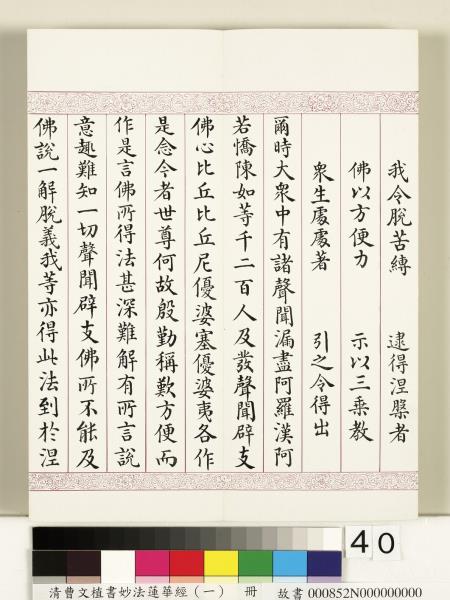 我令脫苦縛　逮得涅槃者
佛以方便力　示以三乘教
眾生處處著　引之令得出
爾時大眾中有諸聲聞漏盡阿羅漢阿
若憍陳如等千二百人及發聲聞辟支
佛心比丘比丘尼優婆塞優婆夷各作
是念今者世尊何故殷勤稱歎方便而
作是言佛所得法甚深難解有所言說
意趣難知一切聲聞辟支佛所不能及
佛說一解脫義我等亦得此法到於涅
40
清曹文植書妙法蓮華經(一)　冊　故書 000852N000000000